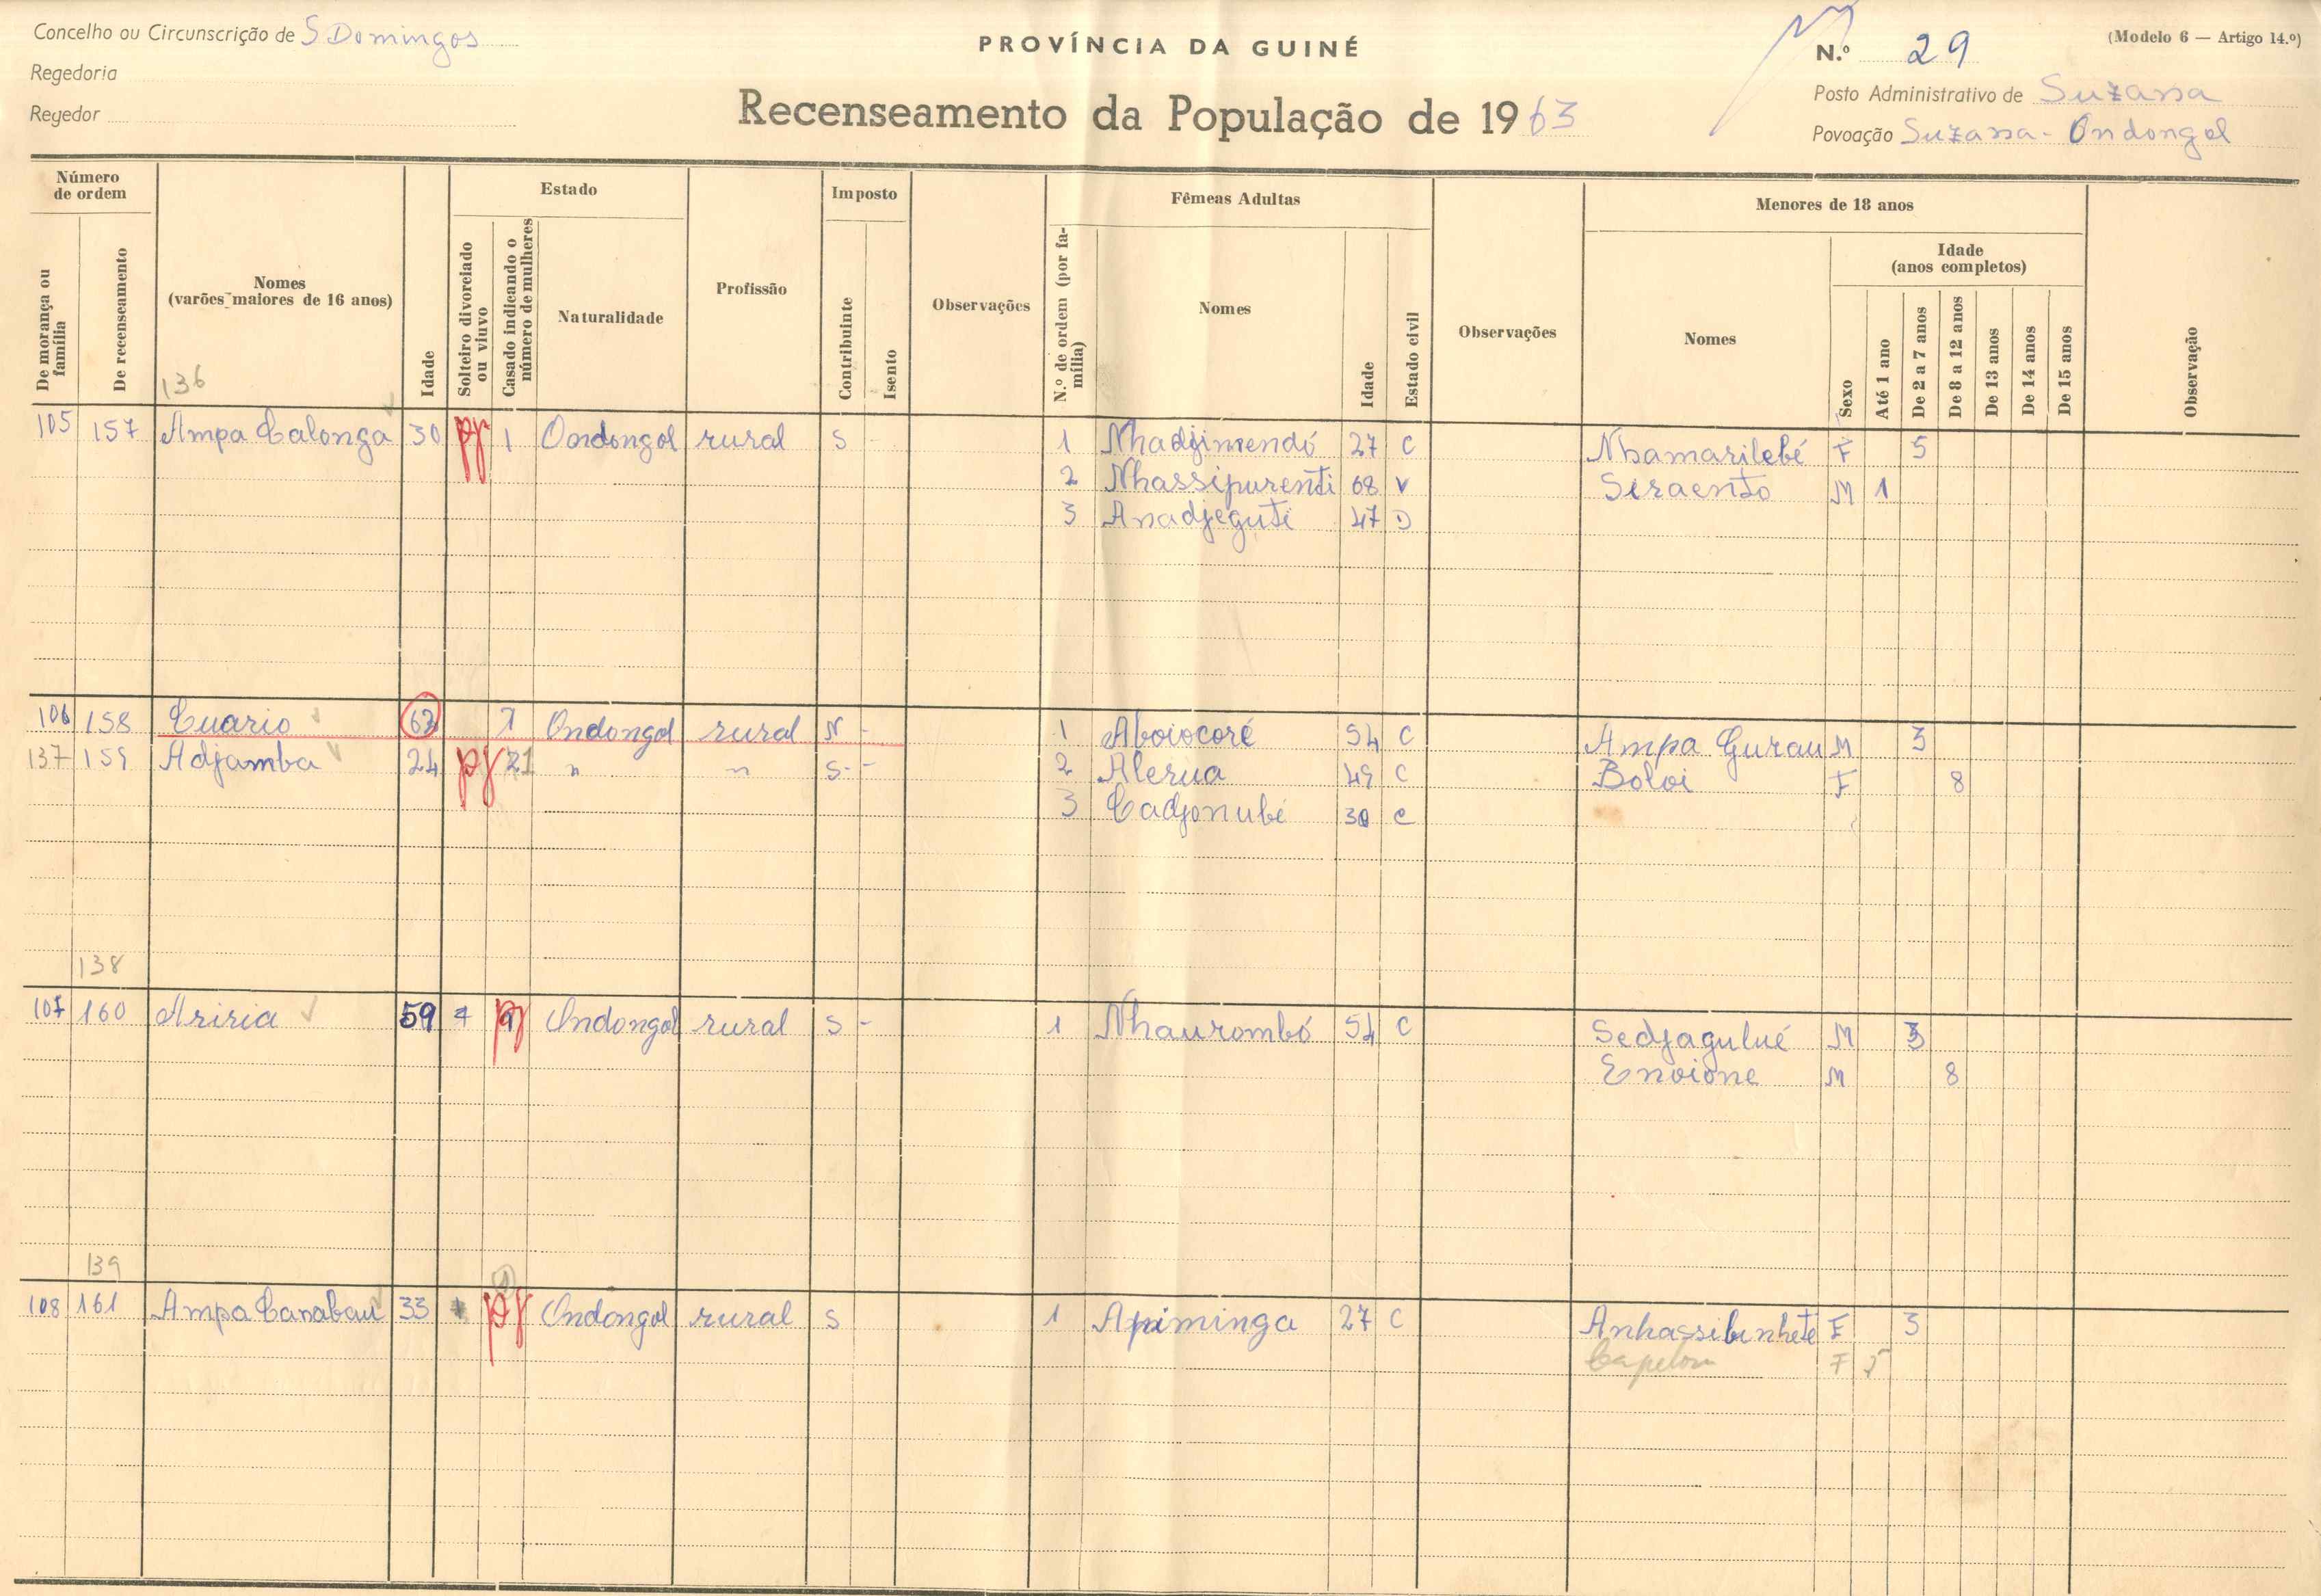 Concelho ou Circunscrição de S Domingos
PROVÍNCIA DA GUINÉ
N.º 29
(Modelo 6 — Artigo 14.º)
Regedoria
Posto Administrativo de Suzana
Regedor
Recenseamento da População de 1963
Povoação Suzana - Ondongol
Número de ordem
Estado
Imposto
Fêmeas Adultas
Menores de 18 anos
De morança ou família
De recenseamento
Nomes (varões maiores de 16 anos)
Idade
Solteiro divorciado ou viuvo
Casado indicando o número de mulheres
Naturalidade
Profissão
Contribuinte
Isento
Observações
N.º de ordem (por família)
Nomes
Idade
Estado civil
Observações
Nomes
Sexo
Idade (anos completos)
Até 1 ano
De 2 a 7 anos
De 8 a 12 anos
De 13 anos
De 14 anos
De 15 anos
Observação
136
105 157 Ampa Calonga 30 pg 1 Ondongol rural S - 1 Nhadjimendó 27 C Nhamarilebé F 5
2 Nhassipurenti 68 V Seraento M 1
3 Anadjeguti 47 D
106 158 Cuario 63 1 Ondongol rural N - 1 Aboiocoré 54 C Ampa Gurau M 3
137 159 Adjamba 24 pg 21 " " S - - 2 Alerua 49 C Boloi F 8
3 Cadjonubé 30 C
138
107 160 Ariria 59 pg Ondongol rural S - 1 Nhaurombó 54 C Sedjagulué M 3
Envione M 8
139
108 161 Ampa Canabau 33 pg Ondongol rural S 1 Apiminga 27 C Anhassibinhete F 3
F